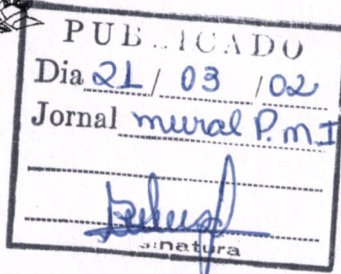 PUBLICADO
Dia 21 / 03 / 02
Jornal mural P.m.I